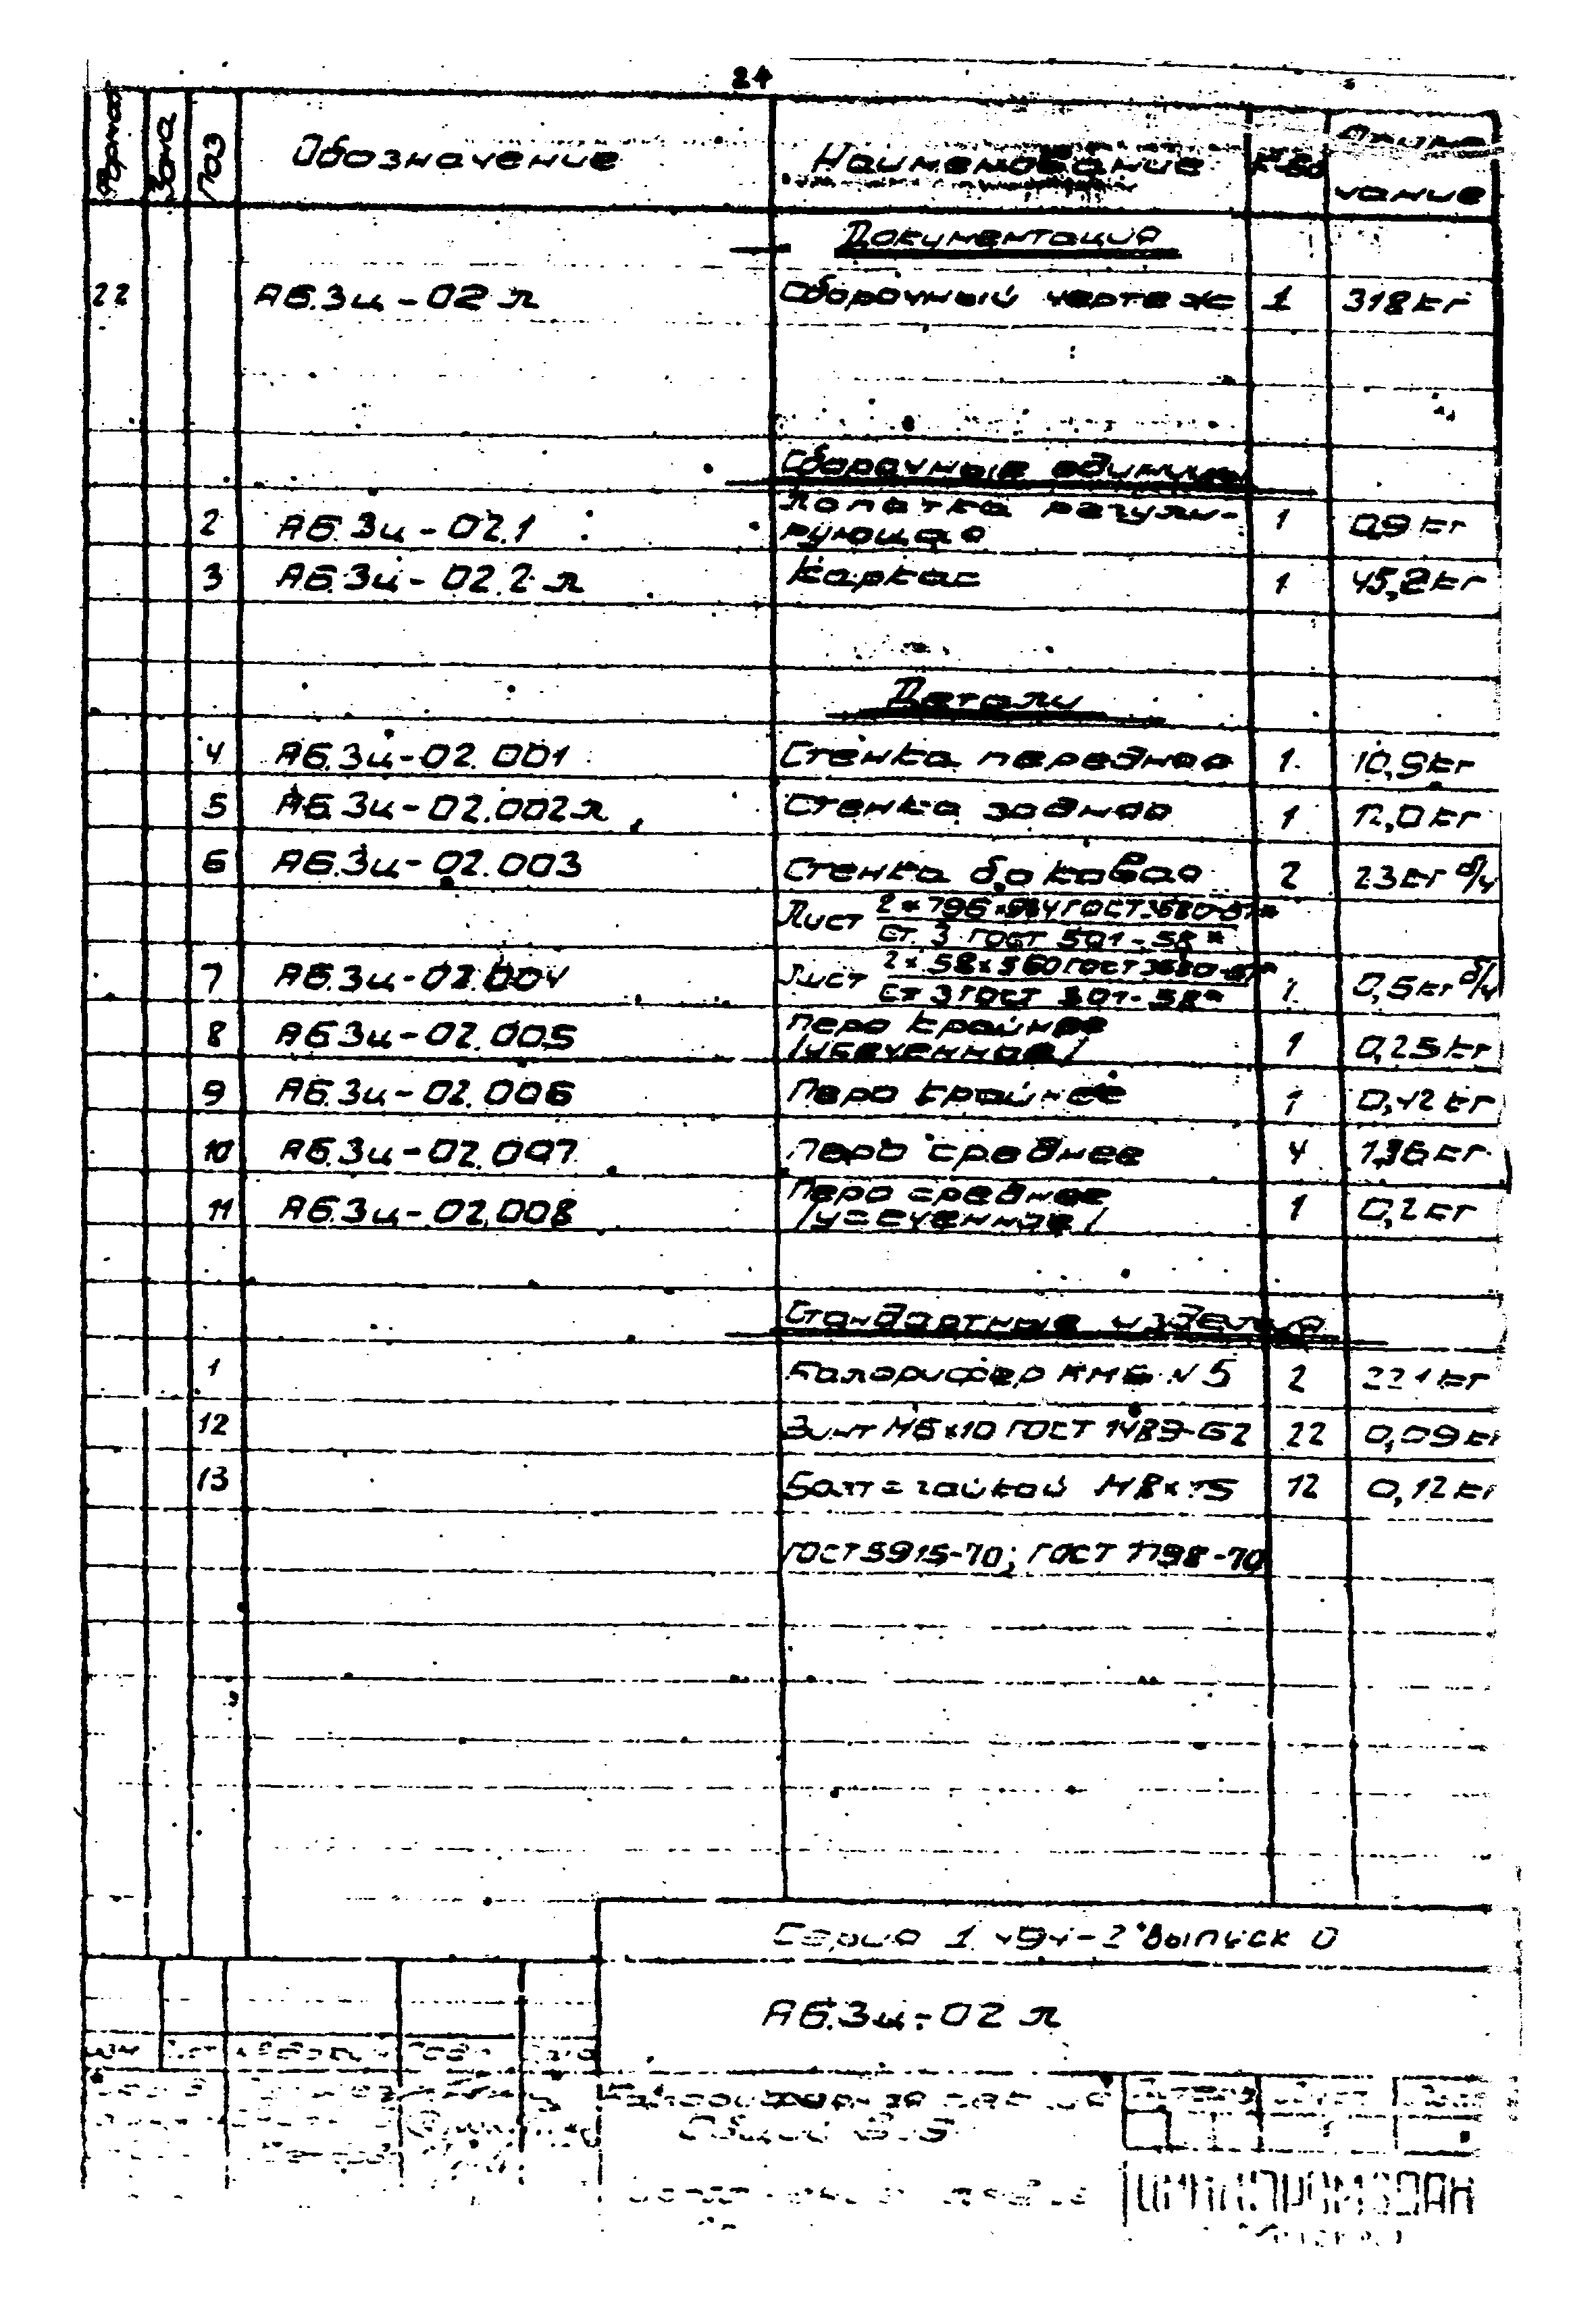 24
Формат Зона Поз Обозначение Наименование К-во Приме
чание
Документация
22 А6.3и-02 л Сборочный чертеж 1 318 кг
Сборочные единицы
2 А6.3и-02.1 Лопатка регули- 1 0,9 кг
рующая
3 А6.3и-02.2 л Каркас 1 45,8 кг
Детали
4 А6.3и-02.001 Стенка передняя 1 10,9 кг
5 А6.3и-02.002 л Стенка задняя 1 12,0 кг
6 А6.3и-02.003 Стенка боковая 2 23 кг б/ч
Лист 2×796× ГОСТ 3680-57*
Ст. 3 ГОСТ 501-58*
7 А6.3и-02.004 Лист 2×58×560 ГОСТ 3680-57* 1 0,5 кг б/ч
Ст 3 ГОСТ 501-58*
8 А6.3и-02.005 Перо крайнее 1 0,25 кг
/усеченное/
9 А6.3и-02.006 Перо крайнее 1 0,42 кг
10 А6.3и-02.007 Перо среднее 4 1,36 кг
11 А6.3и-02.008 Перо среднее 1 0,2 кг
/усеченное/
Стандартные изделия
1 Калорифер КМБ N 5 2 221 кг
12 Винт М6×10 ГОСТ 1489-62 22 0,09 кг
13 Болт с гайкой М8×15 12 0,12 кг
ГОСТ 5915-70; ГОСТ 7798-70
Серия 1.494-2 выпуск 0
А6.3и-02 л
Общий вид
ЦНИИПРОМЗДАН